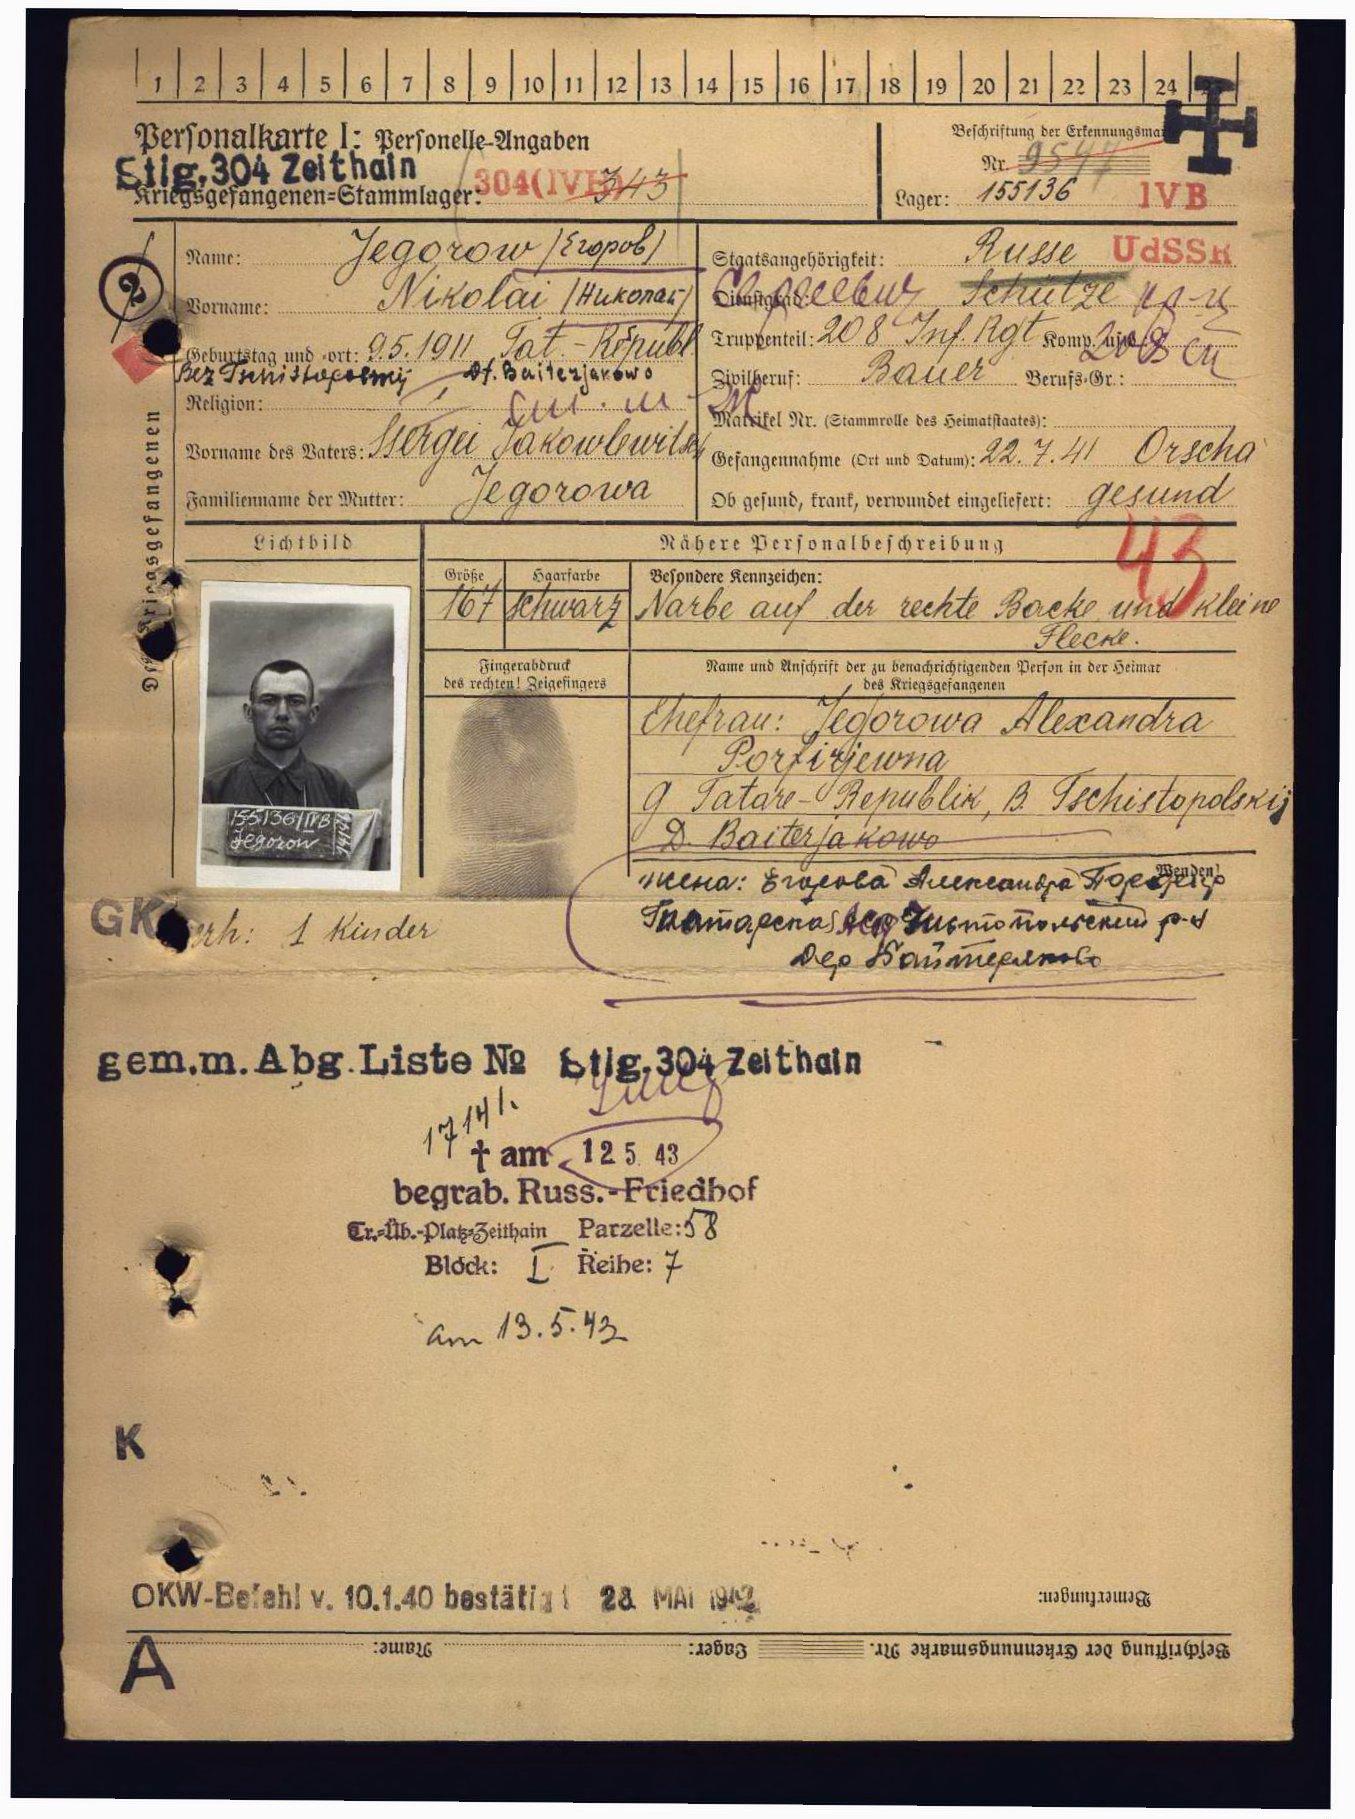 1 2 3 4 5 6 7 8 9 10 11 12 13 14 15 16 17 18 19 20 21 22 23 24
Personalkarte I: Personelle Angaben
Stlg. 304 Zeithain
Kriegsgefangenen-Stammlager: 304 (IVB) 343
Beschriftung der Erkennungsmarke
Nr. 9547
Lager: 155136 IVB
2
Des Kriegsgefangenen
Name: Jegorow /Егоров/
Vorname: Nikolai /Николай/
Geburtstag und -ort: 9.5.1911 Tat.-Republ
Bez Tschistopolskij Df. Baiterjakowo
Religion:
Vorname des Vaters: Ssergei Jakowlewitsch
Familienname der Mutter: Jegorowa
Staatsangehörigkeit: Russe UdSSR
Dienstgrad: Schütze
Truppenteil: 208 Inf. Rgt Komp. usw.:
Zivilberuf: Bauer Berufs-Gr.:
Matrikel Nr. (Stammrolle des Heimatstaates):
Gefangennahme (Ort und Datum): 22.7.41 Orscha
Ob gesund, krank, verwundet eingeliefert: gesund
43
Lichtbild
Nähere Personalbeschreibung
Größe Haarfarbe Besondere Kennzeichen:
167 schwarz Narbe auf der rechte Backe und kleine
Flecke.
Fingerabdruck
des rechten! Zeigefingers
Name und Anschrift der zu benachrichtigenden Person in der Heimat
des Kriegsgefangenen
Ehefrau: Jegorowa Alexandra
Porfirjewna
Tatare-Republik, B. Tschistopolskij
D. Baiterjakowo
155136/IVB
Jegorow
Wenden!
жена: Егорова Александра
Татарская Чистопольский р-н
дер Байтеряково
GK
verh: 1 Kinder
gem.m. Abg. Liste № Stlg. 304 Zeithain
17141.
† am 12 5 43
begrab. Russ.-Friedhof
Tr.-Üb.-Platz-Zeithain Parzelle: 58
Block: I. Reihe: 7
am 13.5.43
K
OKW-Befehl v. 10.1.40 bestätigt 28. MAI 1942
Bemerkungen:
Beschriftung der Erkennungsmarke Nr. Lager: Name:
A